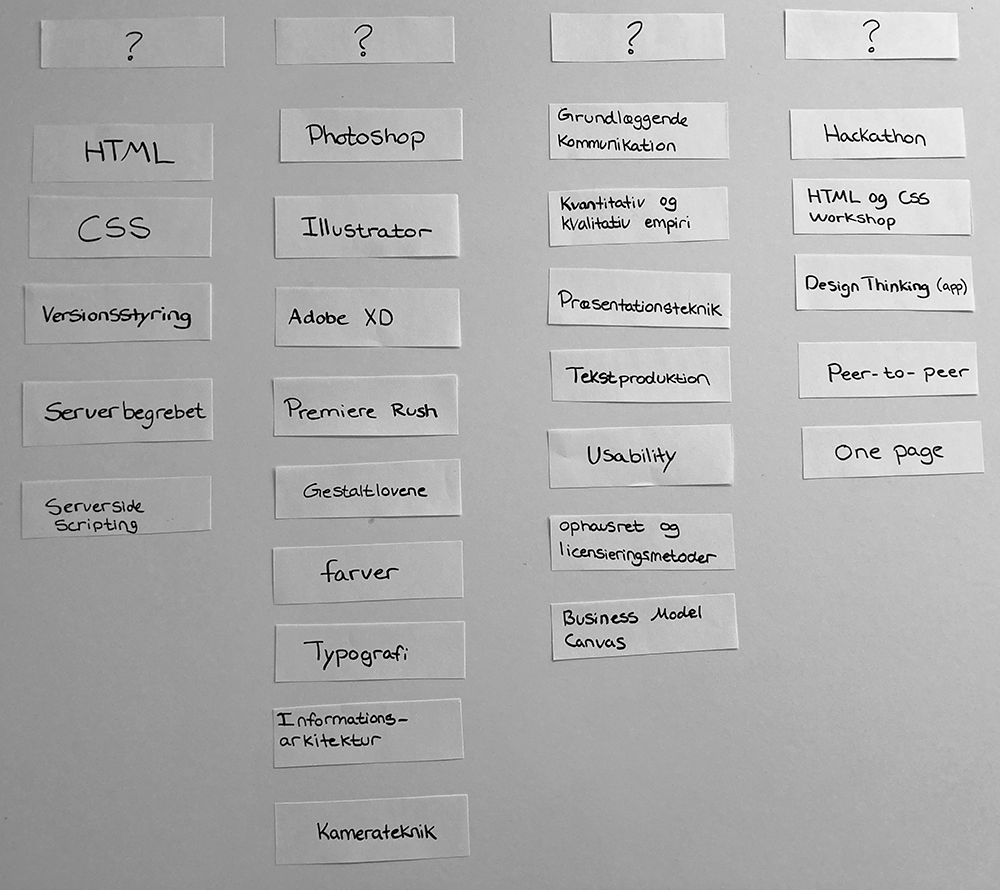 ?
HTML
CSS
Versionsstyring
Serverbegrebet
Serverside
scripting
?
Photoshop
Illustrator
Adobe XD
Premiere Rush
Gestaltlovene
farver
Typografi
Informations-
arkitektur
Kamerateknik
?
Grundlæggende
Kommunikation
Kvantitativ og
kvalitativ empiri
Præsentationsteknik
Tekstproduktion
Usability
ophausret og
licensieringsmetoder
Business Model
Canvas
?
Hackathon
HTML og CSS
workshop
Design Thinking (app)
Peer-to-peer
One page